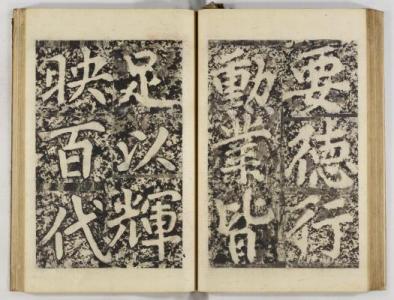 要德行
動業皆
足以輝
映百代